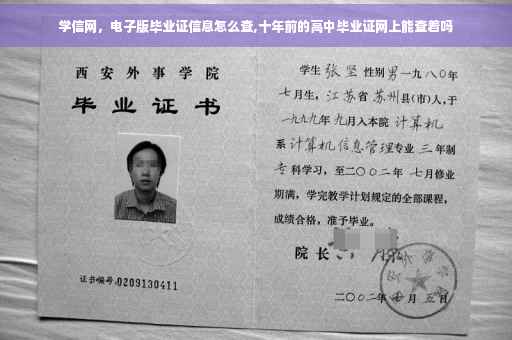 学信网，电子版毕业证信息怎么查,十年前的高中毕业证网上能查着吗
西安外事学院
毕业证书
证书编号:0209130411
学生张坚性别男一九八〇年
七月生，江苏省苏州县(市)人,于
一九九九年九月入本院计算机
系计算机信息管理专业三年制
专科学习，至二〇〇二年七月修业
期满，学完教学计划规定的全部课程，
成绩合格，准予毕业。
院长
二〇〇二年 月五日